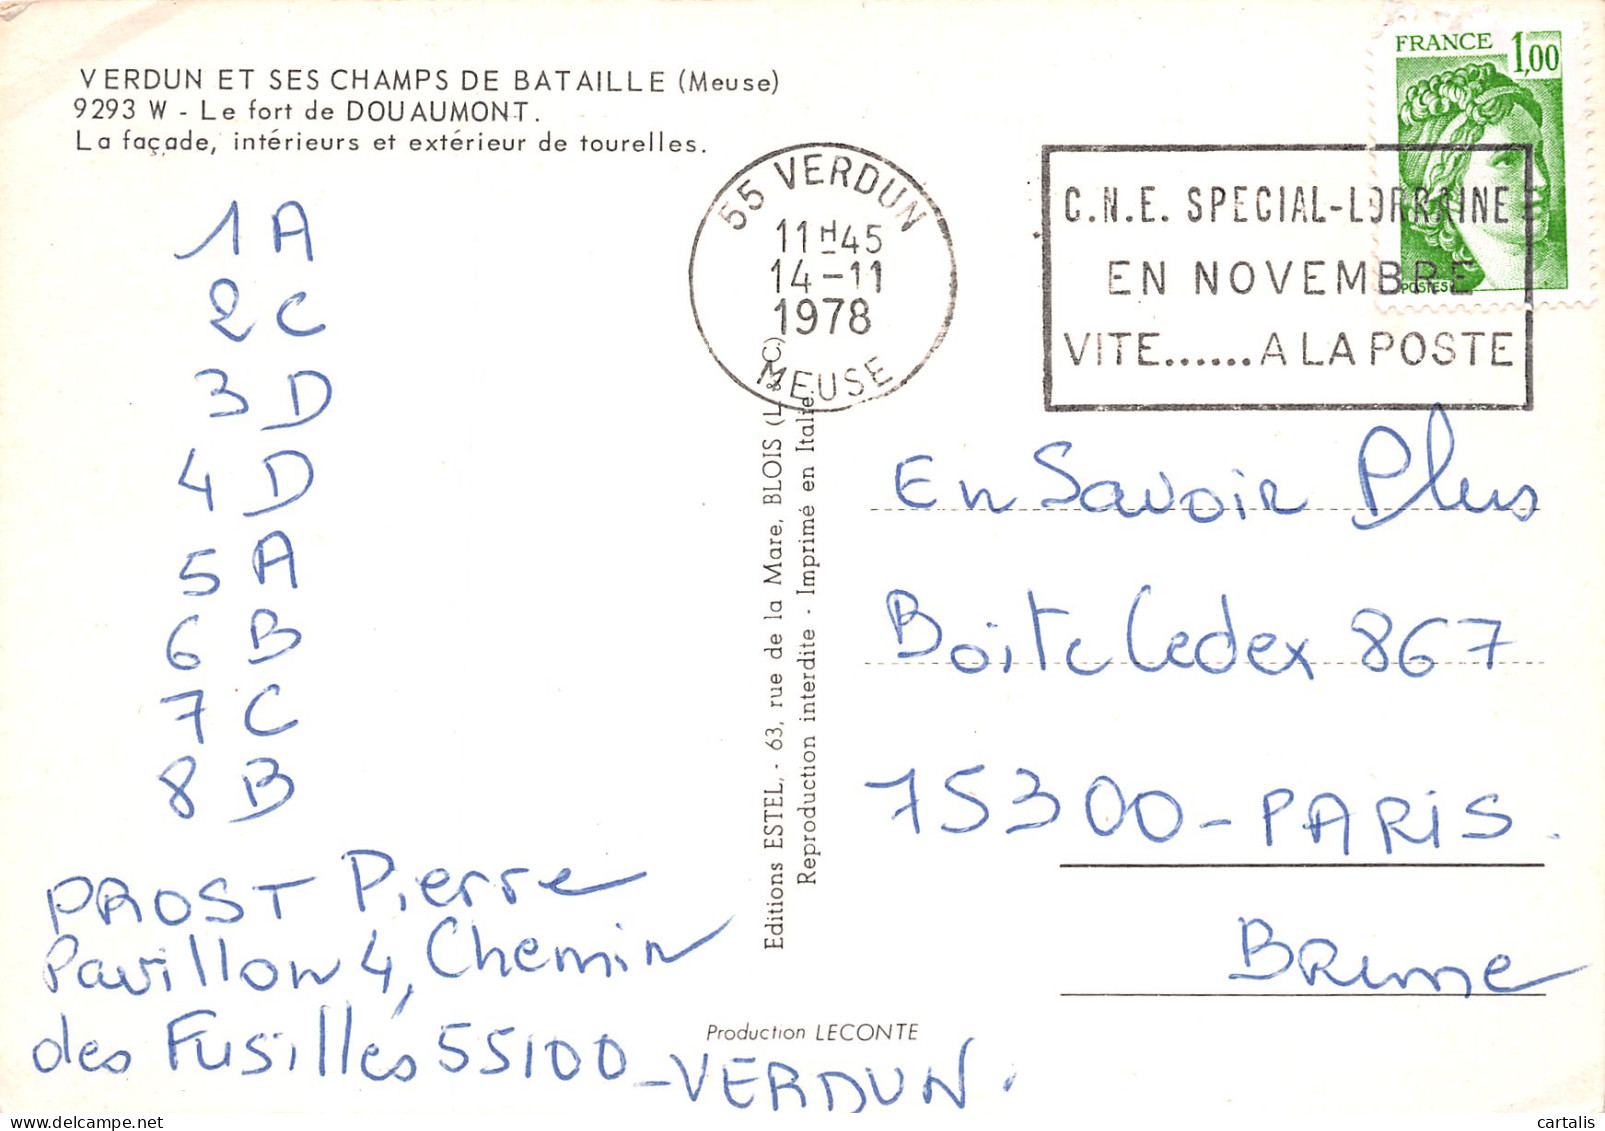 VERDUN ET SES CHAMPS DE BATAILLE (Meuse)
9293 W - Le fort de DOUAUMONT.
La façade, intérieurs et extérieur de tourelles.
55 VERDUN
11H45
14-11
1978
MEUSE
C.N.E. SPECIAL-LORRAINE
EN NOVEMBRE
VITE......A LA POSTE
FRANCE 1,00
POSTES
1 A
2 C
3 D
4 D
5 A
6 B
7 C
8 B
PROST Pierre
Pavillon 4, Chemin
des Fusillés 55100 - VERDUN.
Editions ESTEL, - 63, rue de la Mare, BLOIS (L. & C.)
Reproduction interdite - Imprimé en Italie.
En Savoir Plus
Boite Cedex 867
75300 - PARIS.
Brune
Production LECONTE
cartalis